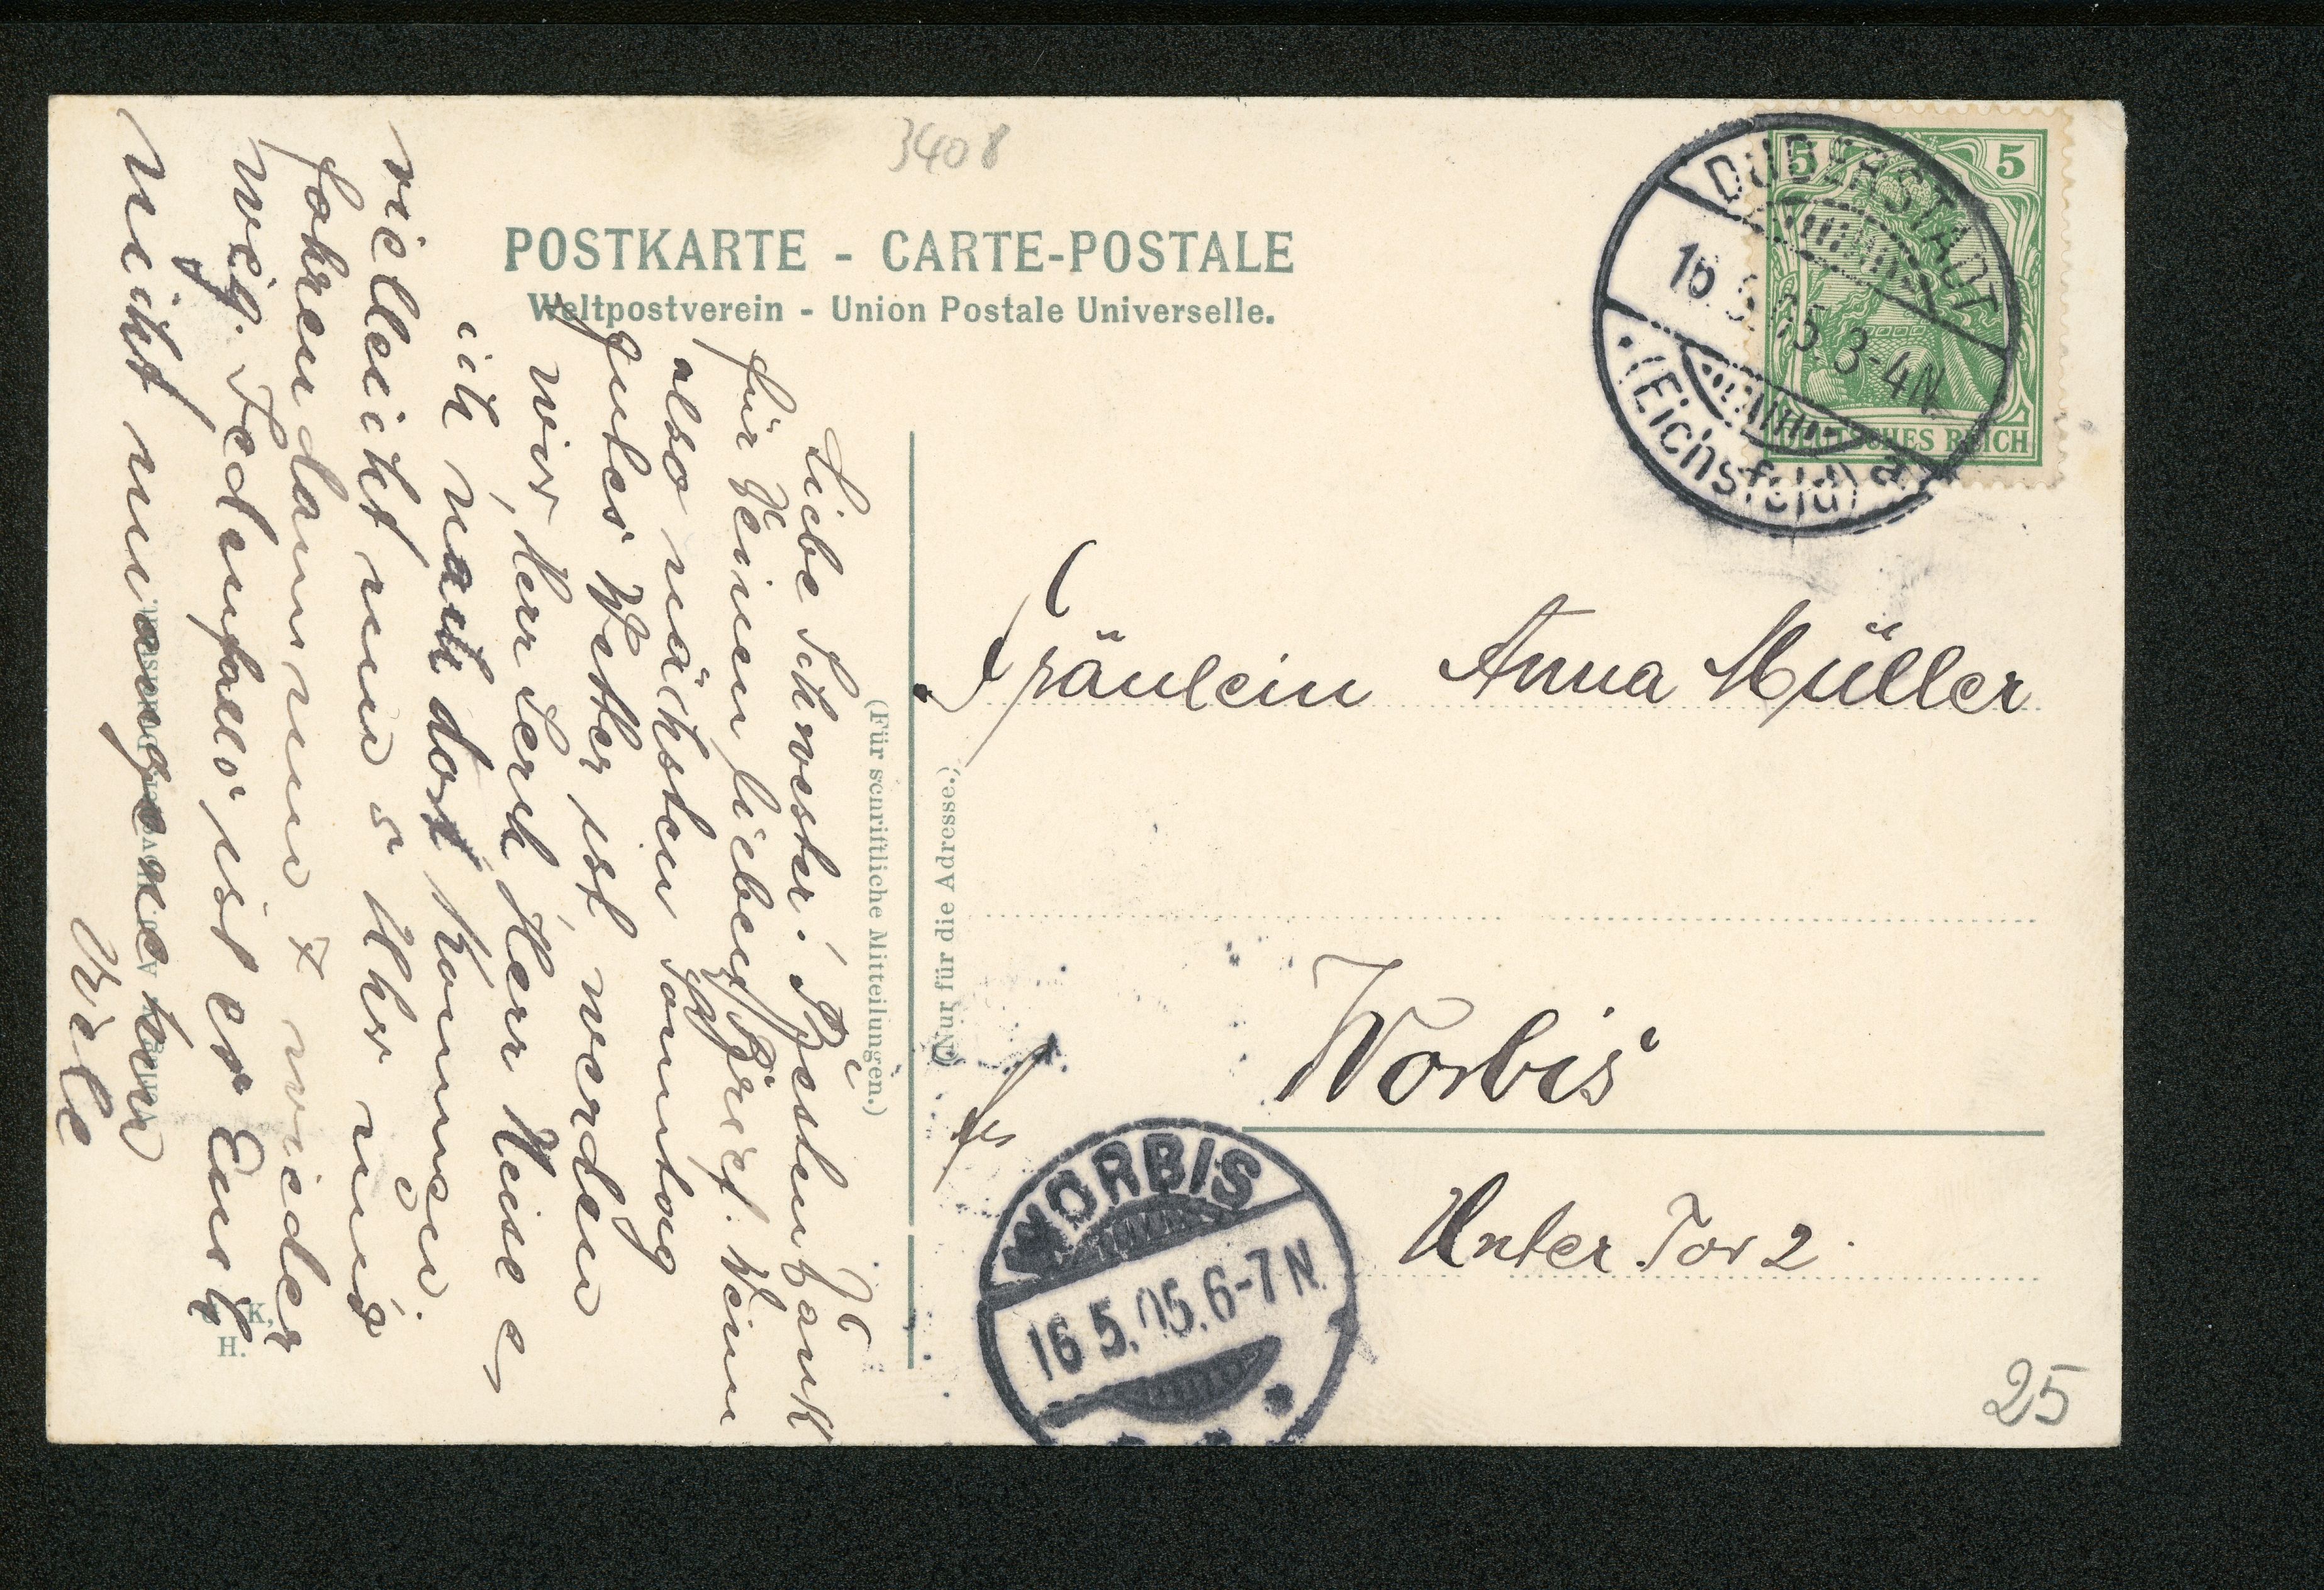 3408
POSTKARTE - CARTE-POSTALE
Weltpostverein - Union Postale Universelle.
5 5
DEUTSCHES REICH
DUDERSTADT
16.5.05.3-4N.
(Eichsfeld) a
(Für schriftliche Mitteilungen.)
(Nur für die Adresse.)
Liebe Schwester! Besten Dank
für Deinen lieben Brief. Wenn
also nächsten Sonntag
gutes Wetter ist, werden
wir, Herr Herr
ich nach dort kommen
vielleicht um 5 Uhr uns
fahren dann um 7 wieder
weg. Jedenfalls ist es Euch
nicht unangenehm
Fräulein Anna Müller
Worbis
Unter Tor 2.
WORBIS
16.5.05.6-7N.
K.
H.
25